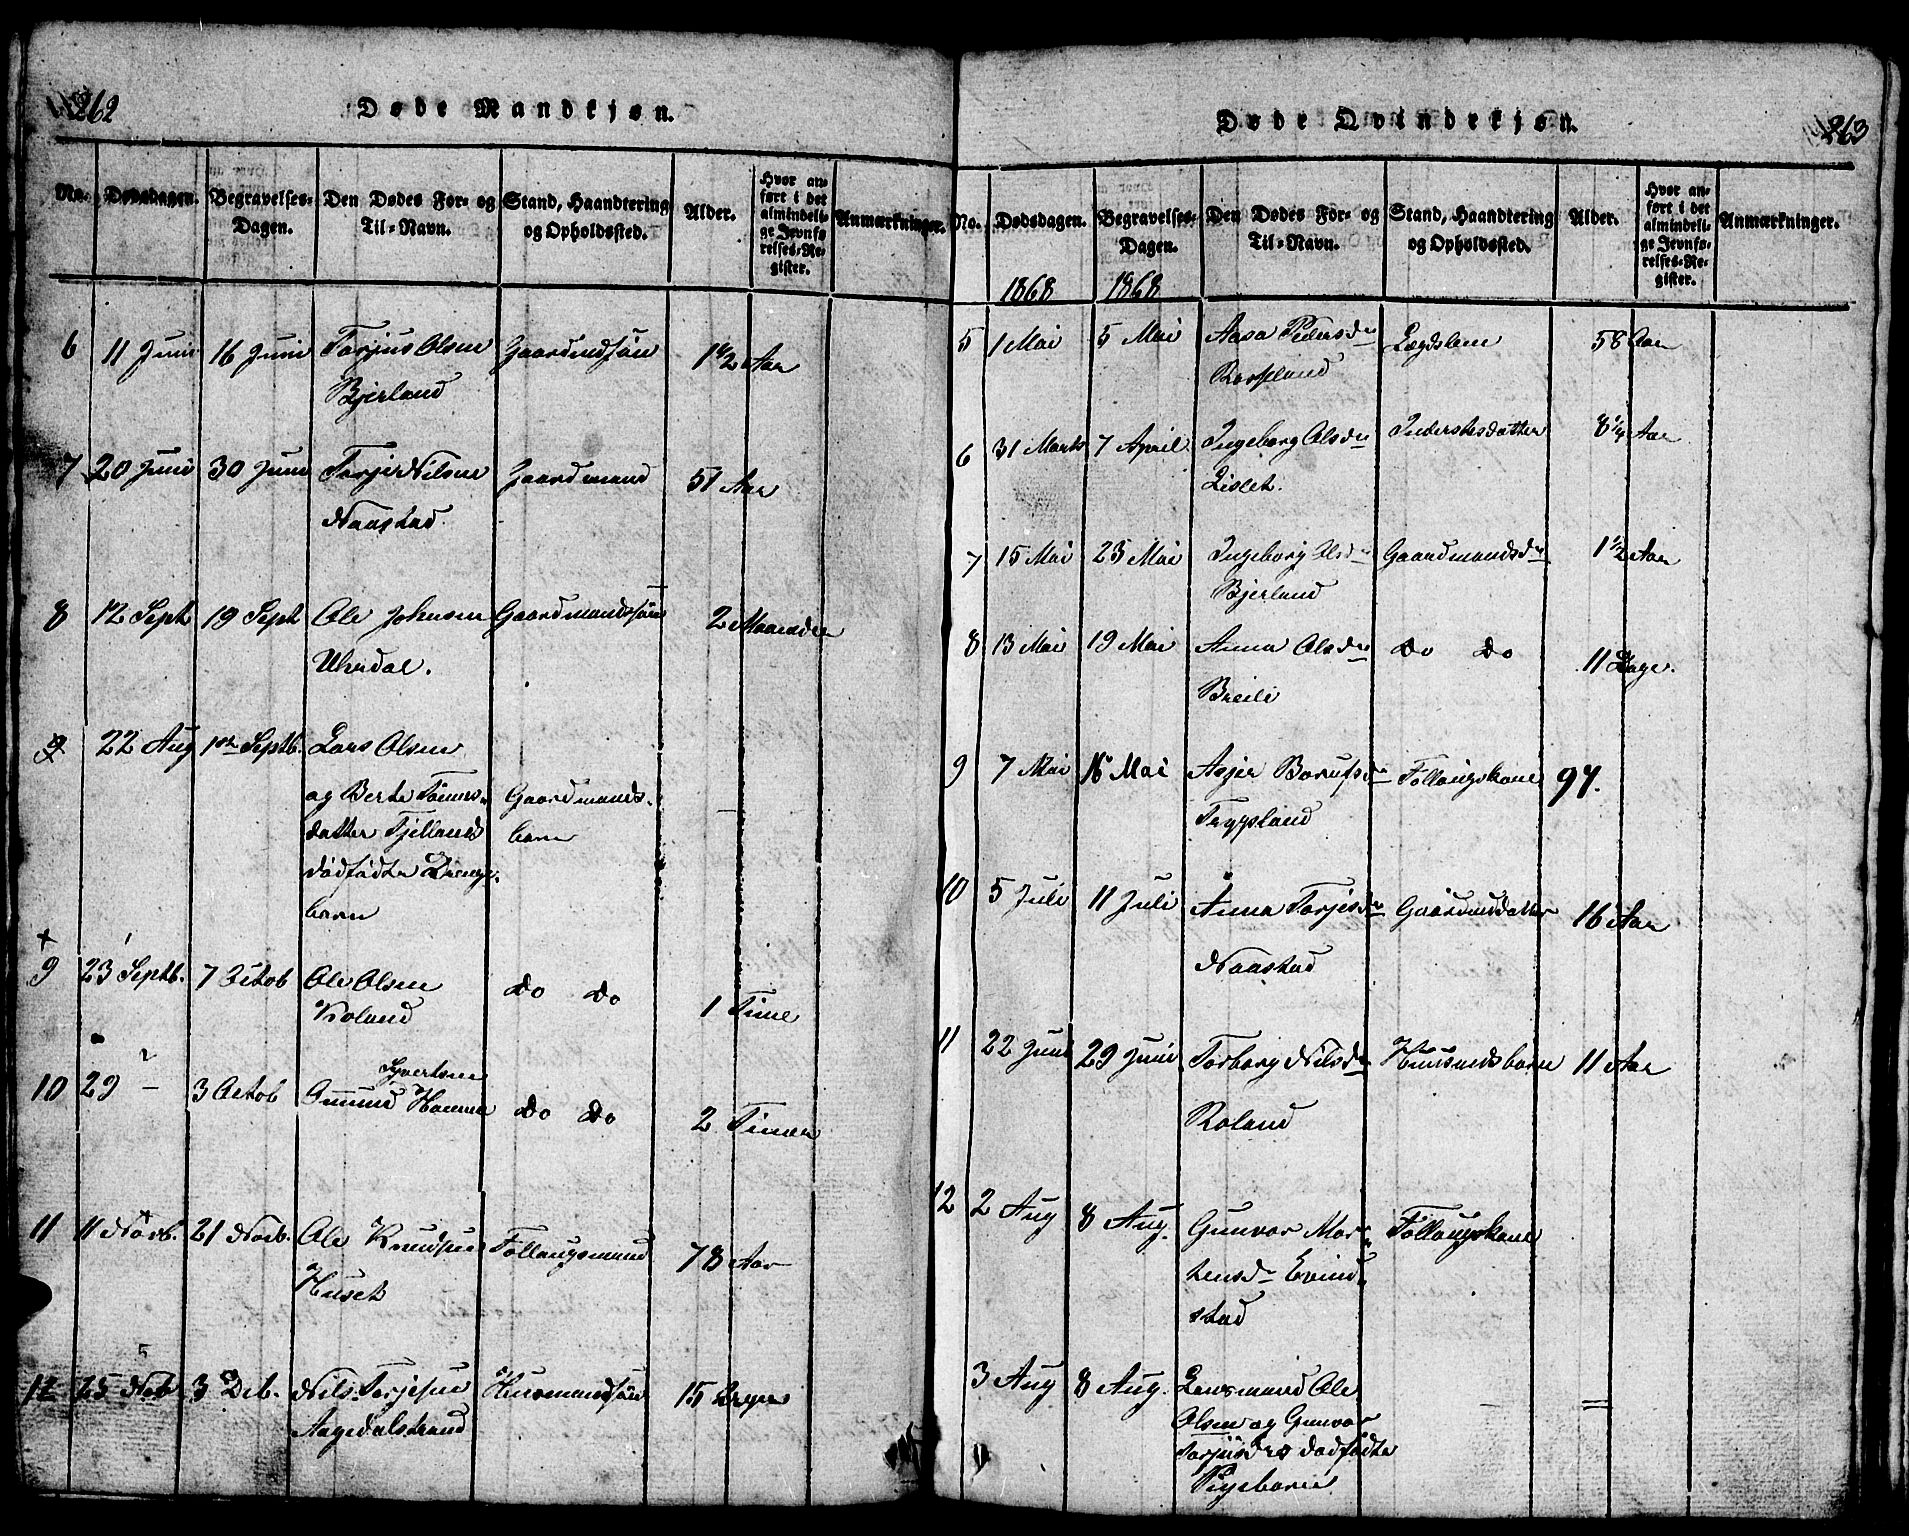 262
Døde Mandkjøn.
No. Dødsdagen. Begravelses-Dagen. Den Dødes For- og Til-Navn. Stand, Haandtering og Opholdssted. Alder. Hvor anført i det almindelige Jevnførelses-Register. Anmærkninger.
6 11 Juni 16 Juni Torjus Olsen Gaardmdsøn 1 1/2 Aar
Bjerland
7 20 Juni 30 Juni Torje Nilsen Gaardmand 51 Aar
Naastad
8 12 Sept 19 Sept Ole Johnsen Gaardmandssøn 2 Maaneder
Uhrdal.
9 22 Aug 1ste Septb. Lars Olsen
og Berte Tønnes- Gaardmands-
datter Fjellands barn
dødfødte Drenge-
barn
9 23 Septb. 7 Octob Ole Olsen Do Do 1 Time
Roland
Syvertsen
10 29 – 3 Octob Gunund Homme Do Do 2 Timer
11 11 Novb. 21 Novb. Ole Knudsen Føllaugsmand 78 Aar
Huset
12 25 Nob 3 Deb. Nils Torjesen Huusmandssøn 15 Dage
Aagedalstrand
263
Døde Qvindekjøn.
No. Dødsdagen. Begravelses-Dagen. Den Dødes For- og Til-Navn. Stand, Haandtering og Opholdssted. Alder. Hvor anført i det almindelige Jevnførelses-Register. Anmærkninger.
1868 1868
5 1 Mai 5 Mai Aasa Pedersdr Lægdslem 58 Aar
Rosseland
6 31 Marts 7 April Ingeborg Olsdr Inderstesdatter 8 1/4 Aar
Lislet.
7 15 Mai 23 Mai Ingeborg Olsdr Gaardmandsdr 1 1/2 Aar
Bjerland
8 13 Mai 19 Mai Anna Olsdr Do Do 11 Dage.
Breili
9 7 Mai 16 Mai Asjer Borufsdr Føllaugskone 97.
Trygsland
10 5 Juli 11 Juli Anna Torjesdr Gaardmddatter 16 Aar
Naastad
11 22 Juni 29 Juni Torborg Nilsdr Huusmdsbarn 11 Aar
Roland
12 2 Aug 8 Aug. Gunvor Mor- Føllaugskone
tensdr Evind-
stad
3 Aug 8 Aug. Lensmand Ole =
Olsen og Gunvor
Torjusdrs dødfødte
Pigebarn